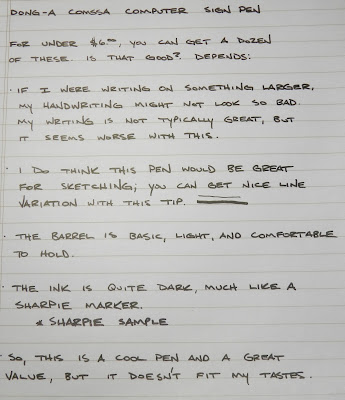 DONG-A COMSSA COMPUTER SIGN PEN
FOR UNDER $6.00, YOU CAN GET A DOZEN
OF THESE. IS THAT GOOD? DEPENDS:
· IF I WERE WRITING ON SOMETHING LARGER,
MY HANDWRITING MIGHT NOT LOOK SO BAD.
MY WRITING IS NOT TYPICALLY GREAT, BUT
IT SEEMS WORSE WITH THIS.
· I DO THINK THIS PEN WOULD BE GREAT
FOR SKETCHING; YOU CAN GET NICE LINE
VARIATION WITH THIS TIP.
· THE BARREL IS BASIC, LIGHT, AND COMFORTABLE
TO HOLD.
· THE INK IS QUITE DARK, MUCH LIKE A
SHARPIE MARKER.
* SHARPIE SAMPLE
SO, THIS IS A COOL PEN AND A GREAT
VALUE, BUT IT DOESN'T FIT MY TASTES.